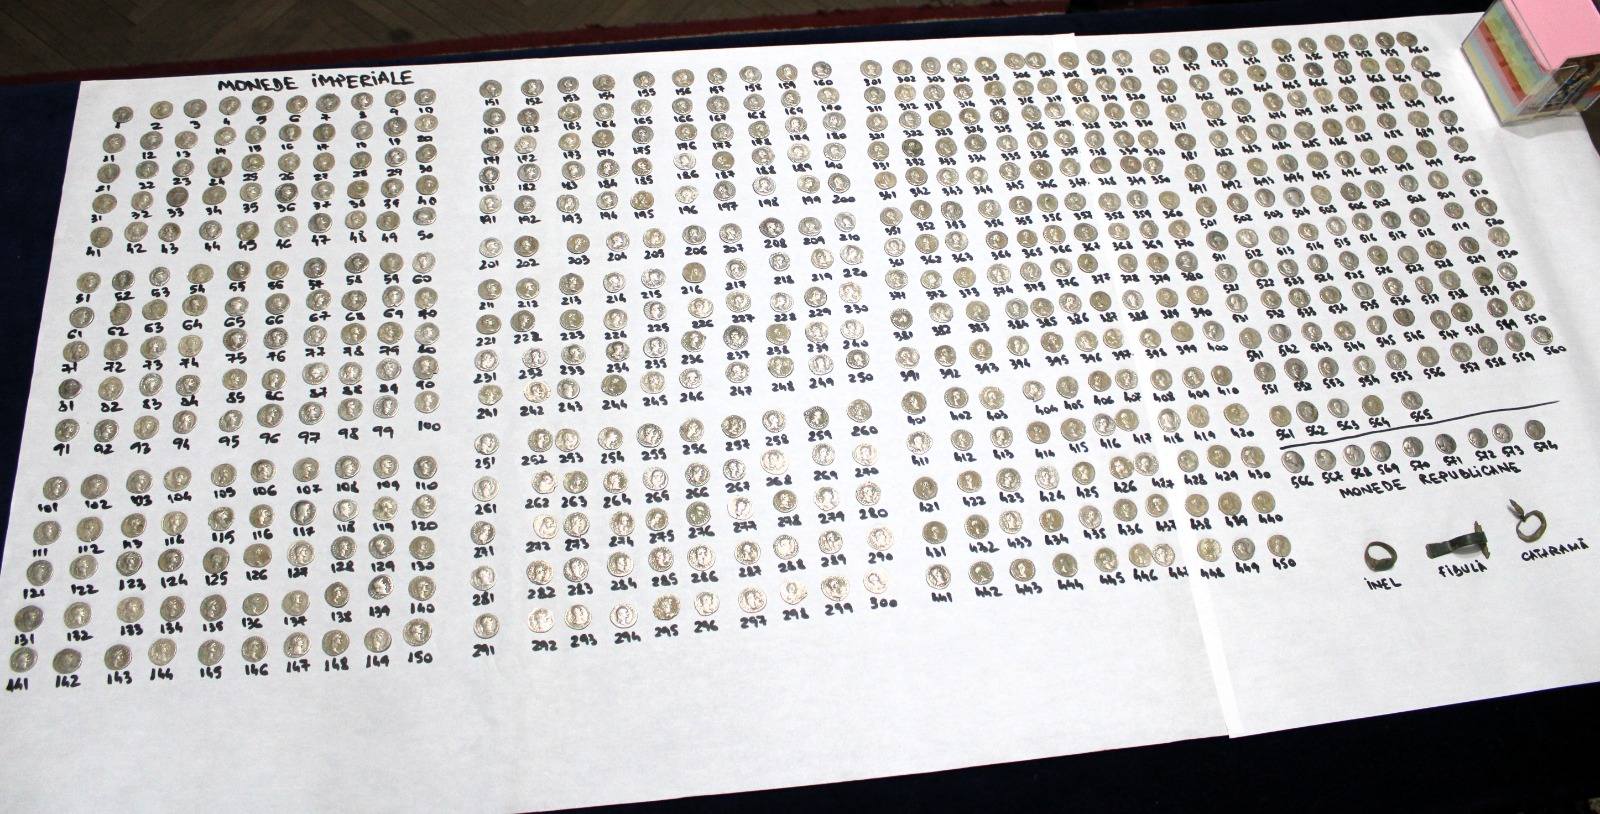 MONEDE IMPERIALE
1 2 3 4 5 6 7 8 9 10
11 12 13 14 15 16 17 18 19 20
21 22 23 24 25 26 27 28 29 30
31 32 33 34 35 36 37 38 39 40
41 42 43 44 45 46 47 48 49 50
51 52 53 54 55 56 57 58 59 60
61 62 63 64 65 66 67 68 69 70
71 72 73 74 75 76 77 78 79 80
81 82 83 84 85 86 87 88 89 90
91 92 93 94 95 96 97 98 99 100
101 102 103 104 105 106 107 108 109 110
111 112 113 114 115 116 117 118 119 120
121 122 123 124 125 126 127 128 129 130
131 132 133 134 135 136 137 138 139 140
141 142 143 144 145 146 147 148 149 150
151 152 153 154 155 156 157 158 159 160
161 162 163 164 165 166 167 168 169 170
171 172 173 174 175 176 177 178 179 180
181 182 183 184 185 186 187 188 189 190
191 192 193 194 195 196 197 198 199 200
201 202 203 204 205 206 207 208 209 210
211 212 213 214 215 216 217 218 219 220
221 222 223 224 225 226 227 228 229 230
231 232 233 234 235 236 237 238 239 240
241 242 243 244 245 246 247 248 249 250
251 252 253 254 255 256 257 258 259 260
261 262 263 264 265 266 267 268 269 270
271 272 273 274 275 276 277 278 279 280
281 282 283 284 285 286 287 288 289 290
291 292 293 294 295 296 297 298 299 300
301 302 303 304 305 306 307 308 309 310
311 312 313 314 315 316 317 318 319 320
321 322 323 324 325 326 327 328 329 330
331 332 333 334 335 336 337 338 339 340
341 342 343 344 345 346 347 348 349 350
351 352 353 354 355 356 357 358 359 360
361 362 363 364 365 366 367 368 369 370
371 372 373 374 375 376 377 378 379 380
381 382 383 384 385 386 387 388 389 390
391 392 393 394 395 396 397 398 399 400
401 402 403 404 405 406 407 408 409 410
411 412 413 414 415 416 417 418 419 420
421 422 423 424 425 426 427 428 429 430
431 432 433 434 435 436 437 438 439 440
441 442 443 444 445 446 447 448 449 450
451 452 453 454 455 456 457 458 459 460
461 462 463 464 465 466 467 468 469 470
471 472 473 474 475 476 477 478 479 480
481 482 483 484 485 486 487 488 489 490
491 492 493 494 495 496 497 498 499 500
501 502 503 504 505 506 507 508 509 510
511 512 513 514 515 516 517 518 519 520
521 522 523 524 525 526 527 528 529 530
531 532 533 534 535 536 537 538 539 540
541 542 543 544 545 546 547 548 549 550
551 552 553 554 555 556 557 558 559 560
561 562 563 564 565
566 567 568 569 570 571 572 573 574
MONEDE REPUBLICANE
INEL FIBULĂ CATARAMĂ